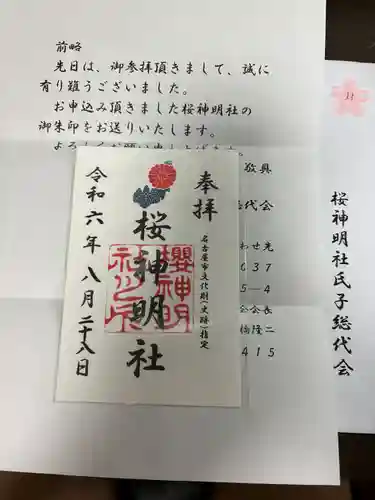 前略
先日は、御参拝頂きまして、誠に
有り難うございました。
お申込み頂きました桜神明社の
御朱印をお送りいたします。
敬具
総代会
わせ先
637
5-4
会長
橋隆二
415
奉拝
名古屋市文化財(史跡)指定
桜神明社
櫻神明
令和六年八月二十八日
11
桜神明社氏子総代会